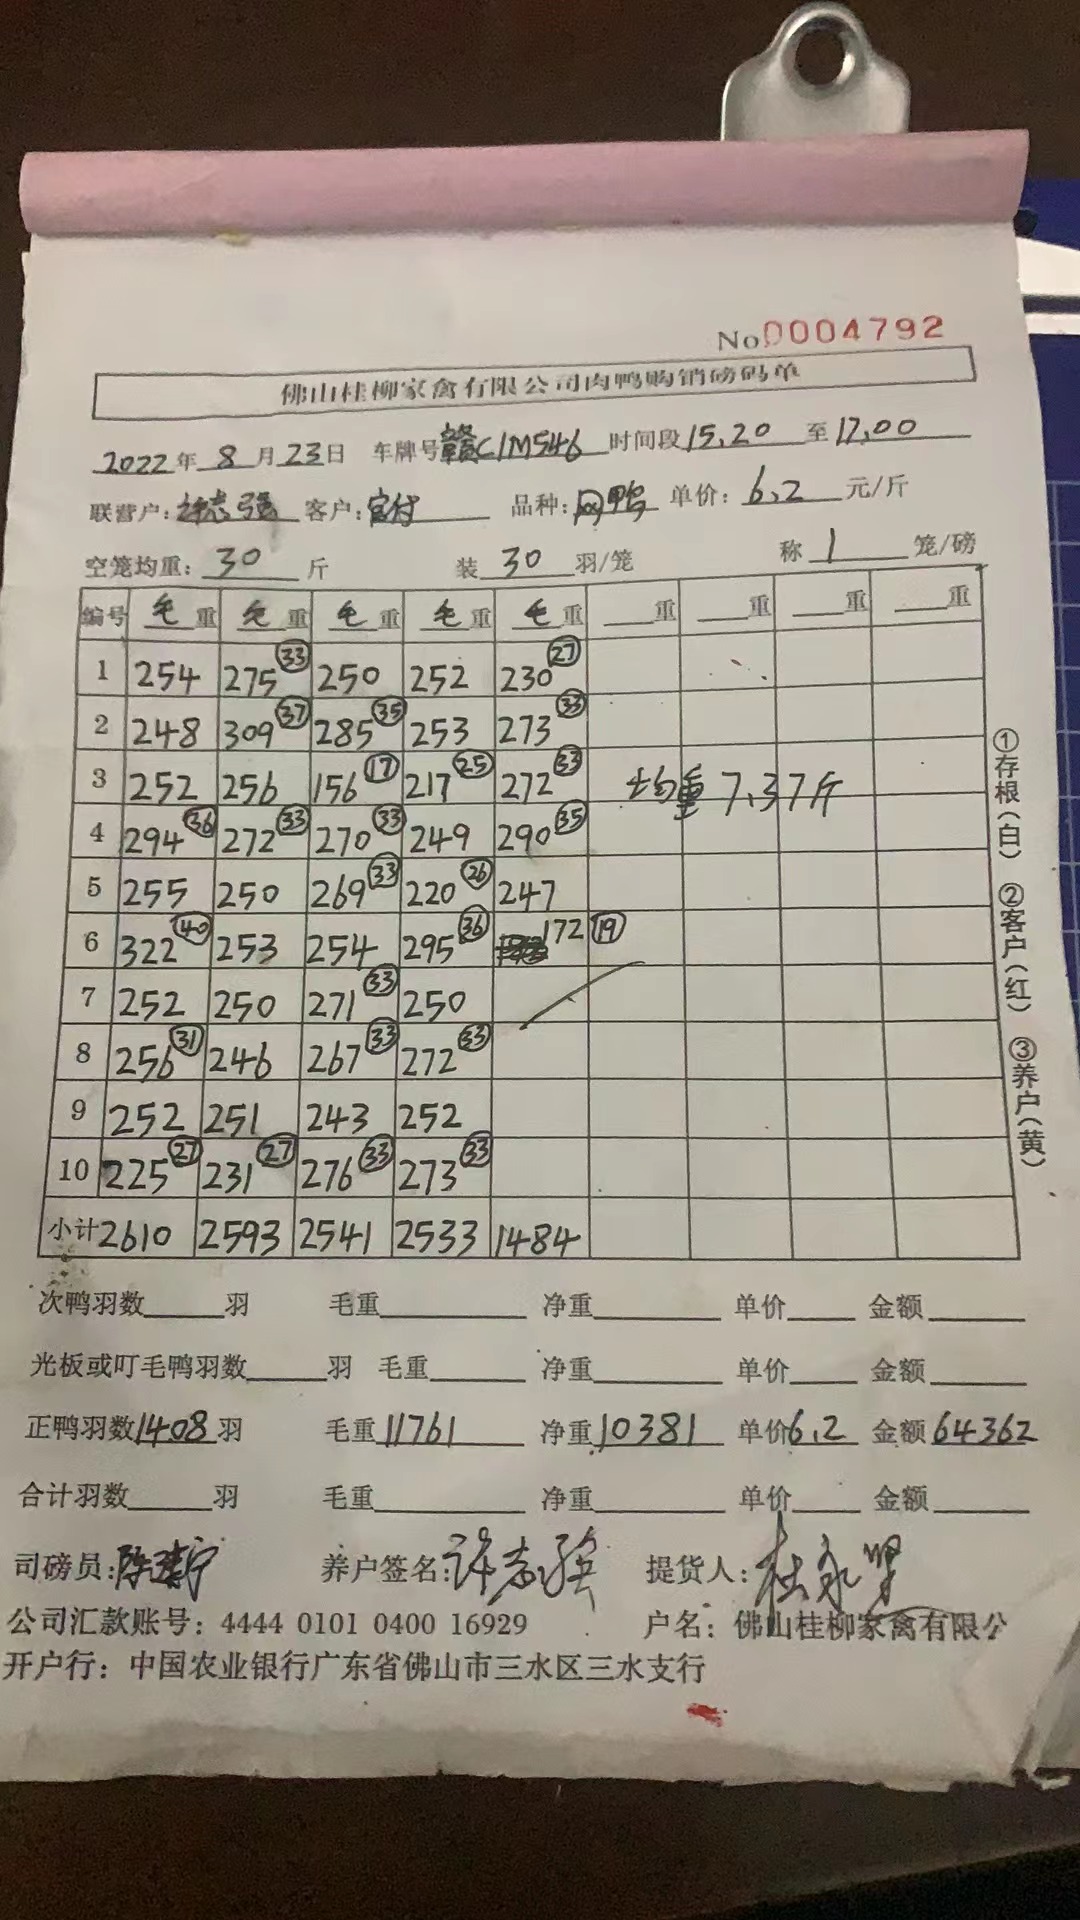 No0004792
佛山桂柳家禽有限公司肉鸭购销磅码单
2022年 8月23日 车牌号赣C1M546 时间段15,20 至17,00
联营户:许志强 客户:官付 品种:网鸭 单价:6.2 元/斤
空笼均重:30 斤 装 30 羽/笼 称 1 笼/磅
编号 毛重 毛重 毛重 毛重 毛重 重 重 重 重
1 254 275㉝ 250 252 230㉗
2 248 309㊲ 285㉟ 253 273㉝
3 252 256 156⑰ 217㉕ 272㉝ 均重 7.37斤
4 294㊱ 272㉝ 270㉝ 249 290㉟
5 255 250 269㉝ 220㉖ 247
6 322㊵ 253 254 295㊱ 172⑲
7 252 250 271㉝ 250
8 256㉛ 246 267㉝ 272㉝
9 252 251 243 252
10 225㉗ 231㉗ 276㉝ 273㉝
小计 2610 2593 2541 2533 1484
①存根(白) ②客户(红) ③养户(黄)
次鸭羽数 羽 毛重 净重 单价 金额
光板或叮毛鸭羽数 羽 毛重 净重 单价 金额
正鸭羽数1408羽 毛重11761 净重10381 单价6.2 金额64362
合计羽数 羽 毛重 净重 单价 金额
司磅员: 养户签名:许志强 提货人:
公司汇款账号:4444 0101 0400 16929 户名:佛山桂柳家禽有限公
开户行:中国农业银行广东省佛山市三水区三水支行